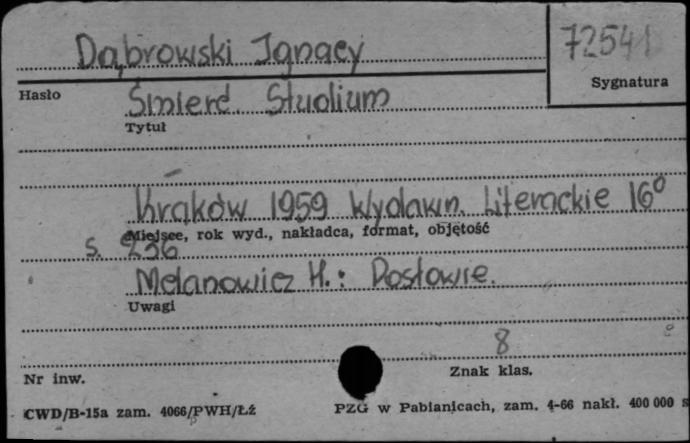 Dąbrowski Ignacy
72541
Sygnatura
Hasło
Śmierć. Studium
Tytuł
Kraków 1959 Wydawn. Literackie 16°
Miejsce, rok wyd., nakładca, format, objętość
s. 236
Melanowicz H.: Posłowie.
Uwagi
8
Nr inw.
Znak klas.
CWD/B-15a zam. 4066/PWH/Łź
PZG w Pabianicach, zam. 4-66 nakł. 400 000 s